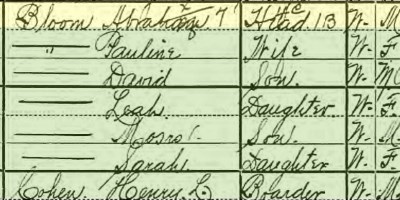 Bloom Abraham 7 Head 13 W. M
— " Pauline Wife W. F
— David Son. W. M
— Leah. Daughter. W. F.
— Son. W. M
— Sarah. Daughter W. F.
Cohen. Henry L. Boarder W. M.